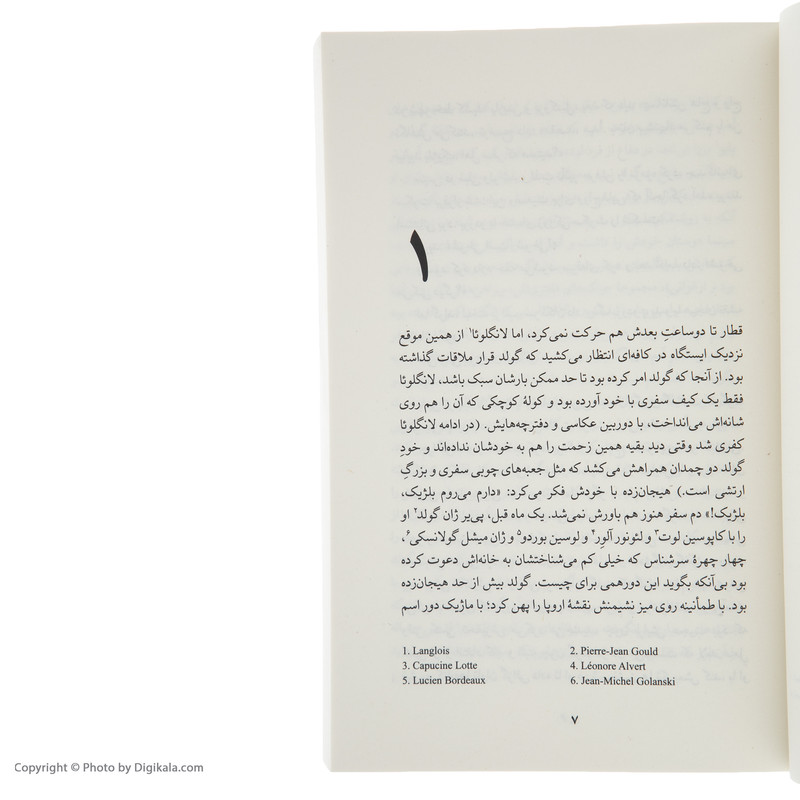 ۱
قطار تا دوساعتِ بعدش هم حرکت نمی‌کرد، اما لانگلوئا۱ از همین موقع
نزدیک ایستگاه در کافه‌ای انتظار می‌کشید که گولد قرار ملاقات گذاشته
بود. از آنجا که گولد امر کرده بود تا حد ممکن بارشان سبک باشد، لانگلوئا
فقط یک کیف سفری با خود آورده بود و کولهٔ کوچکی که آن را هم روی
شانه‌اش می‌انداخت، با دوربین عکاسی و دفترچه‌هایش. (در ادامه لانگلوئا
کفری شد وقتی دید بقیه همین زحمت را هم به خودشان نداده‌اند و خودِ
گولد دو چمدان همراهش می‌کشد که مثل جعبه‌های چوبی سفری و بزرگِ
ارتشی است.) هیجان‌زده با خودش فکر می‌کرد: «دارم می‌روم بلژیک،
بلژیک!» دم سفر هنوز هم باورش نمی‌شد. یک ماه قبل، پی‌یر ژان گولد۲ او
را با کاپوسین لوت۳ و لئونور آلوِر۴ و لوسین بوردو۵ و ژان میشل گولانسکی۶،
چهار چهرهٔ سرشناس که خیلی کم می‌شناختشان به خانه‌اش دعوت کرده
بود بی‌آنکه بگوید این دورهمی برای چیست. گولد بیش از حد هیجان‌زده
بود. با طمأنینه روی میز نشیمنش نقشهٔ اروپا را پهن کرد؛ با ماژیک دور اسم
1. Langlois 2. Pierre-Jean Gould
3. Capucine Lotte 4. Léonore Alvert
5. Lucien Bordeaux 6. Jean-Michel Golanski
۷
Copyright © Photo by Digikala.com